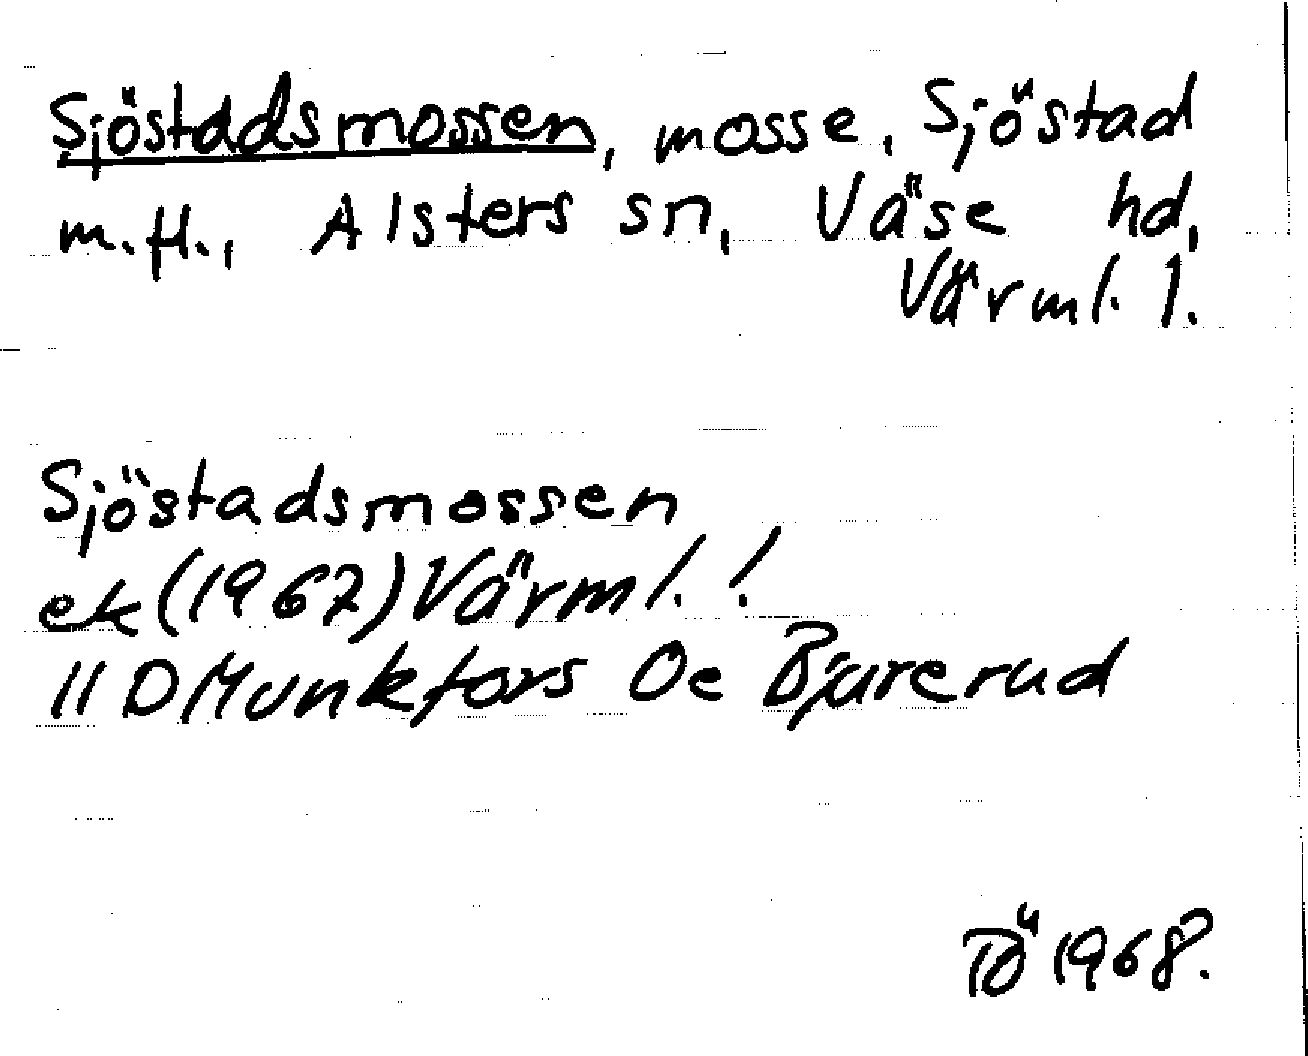 Sjöstadsmossen, mosse, Sjöstad
m.fl., Alsters sn, Väse hd,
Värml. l.
Sjöstadsmossen
ek (1967) Värml. !
11 D Munkfors Oe Bjurerud
TÖ 1968.